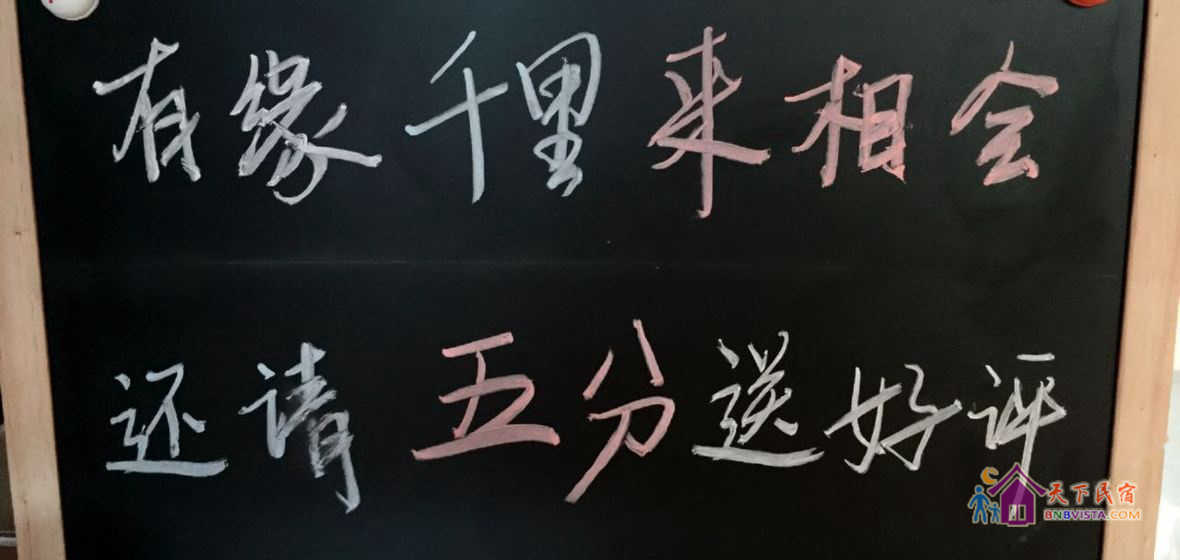 有缘千里来相会
还请五分送好评
天下民宿
BNBVISTA.COM